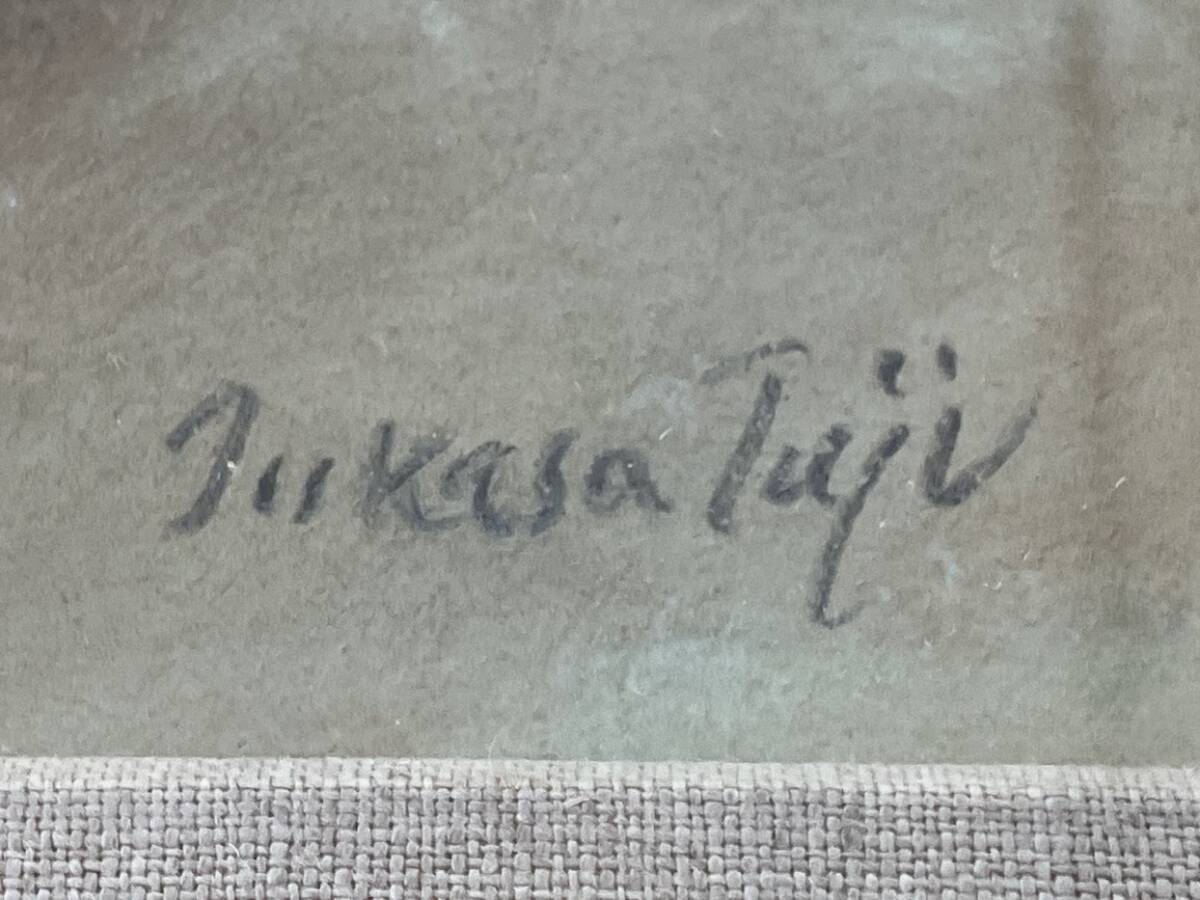 Tukasa Tuji